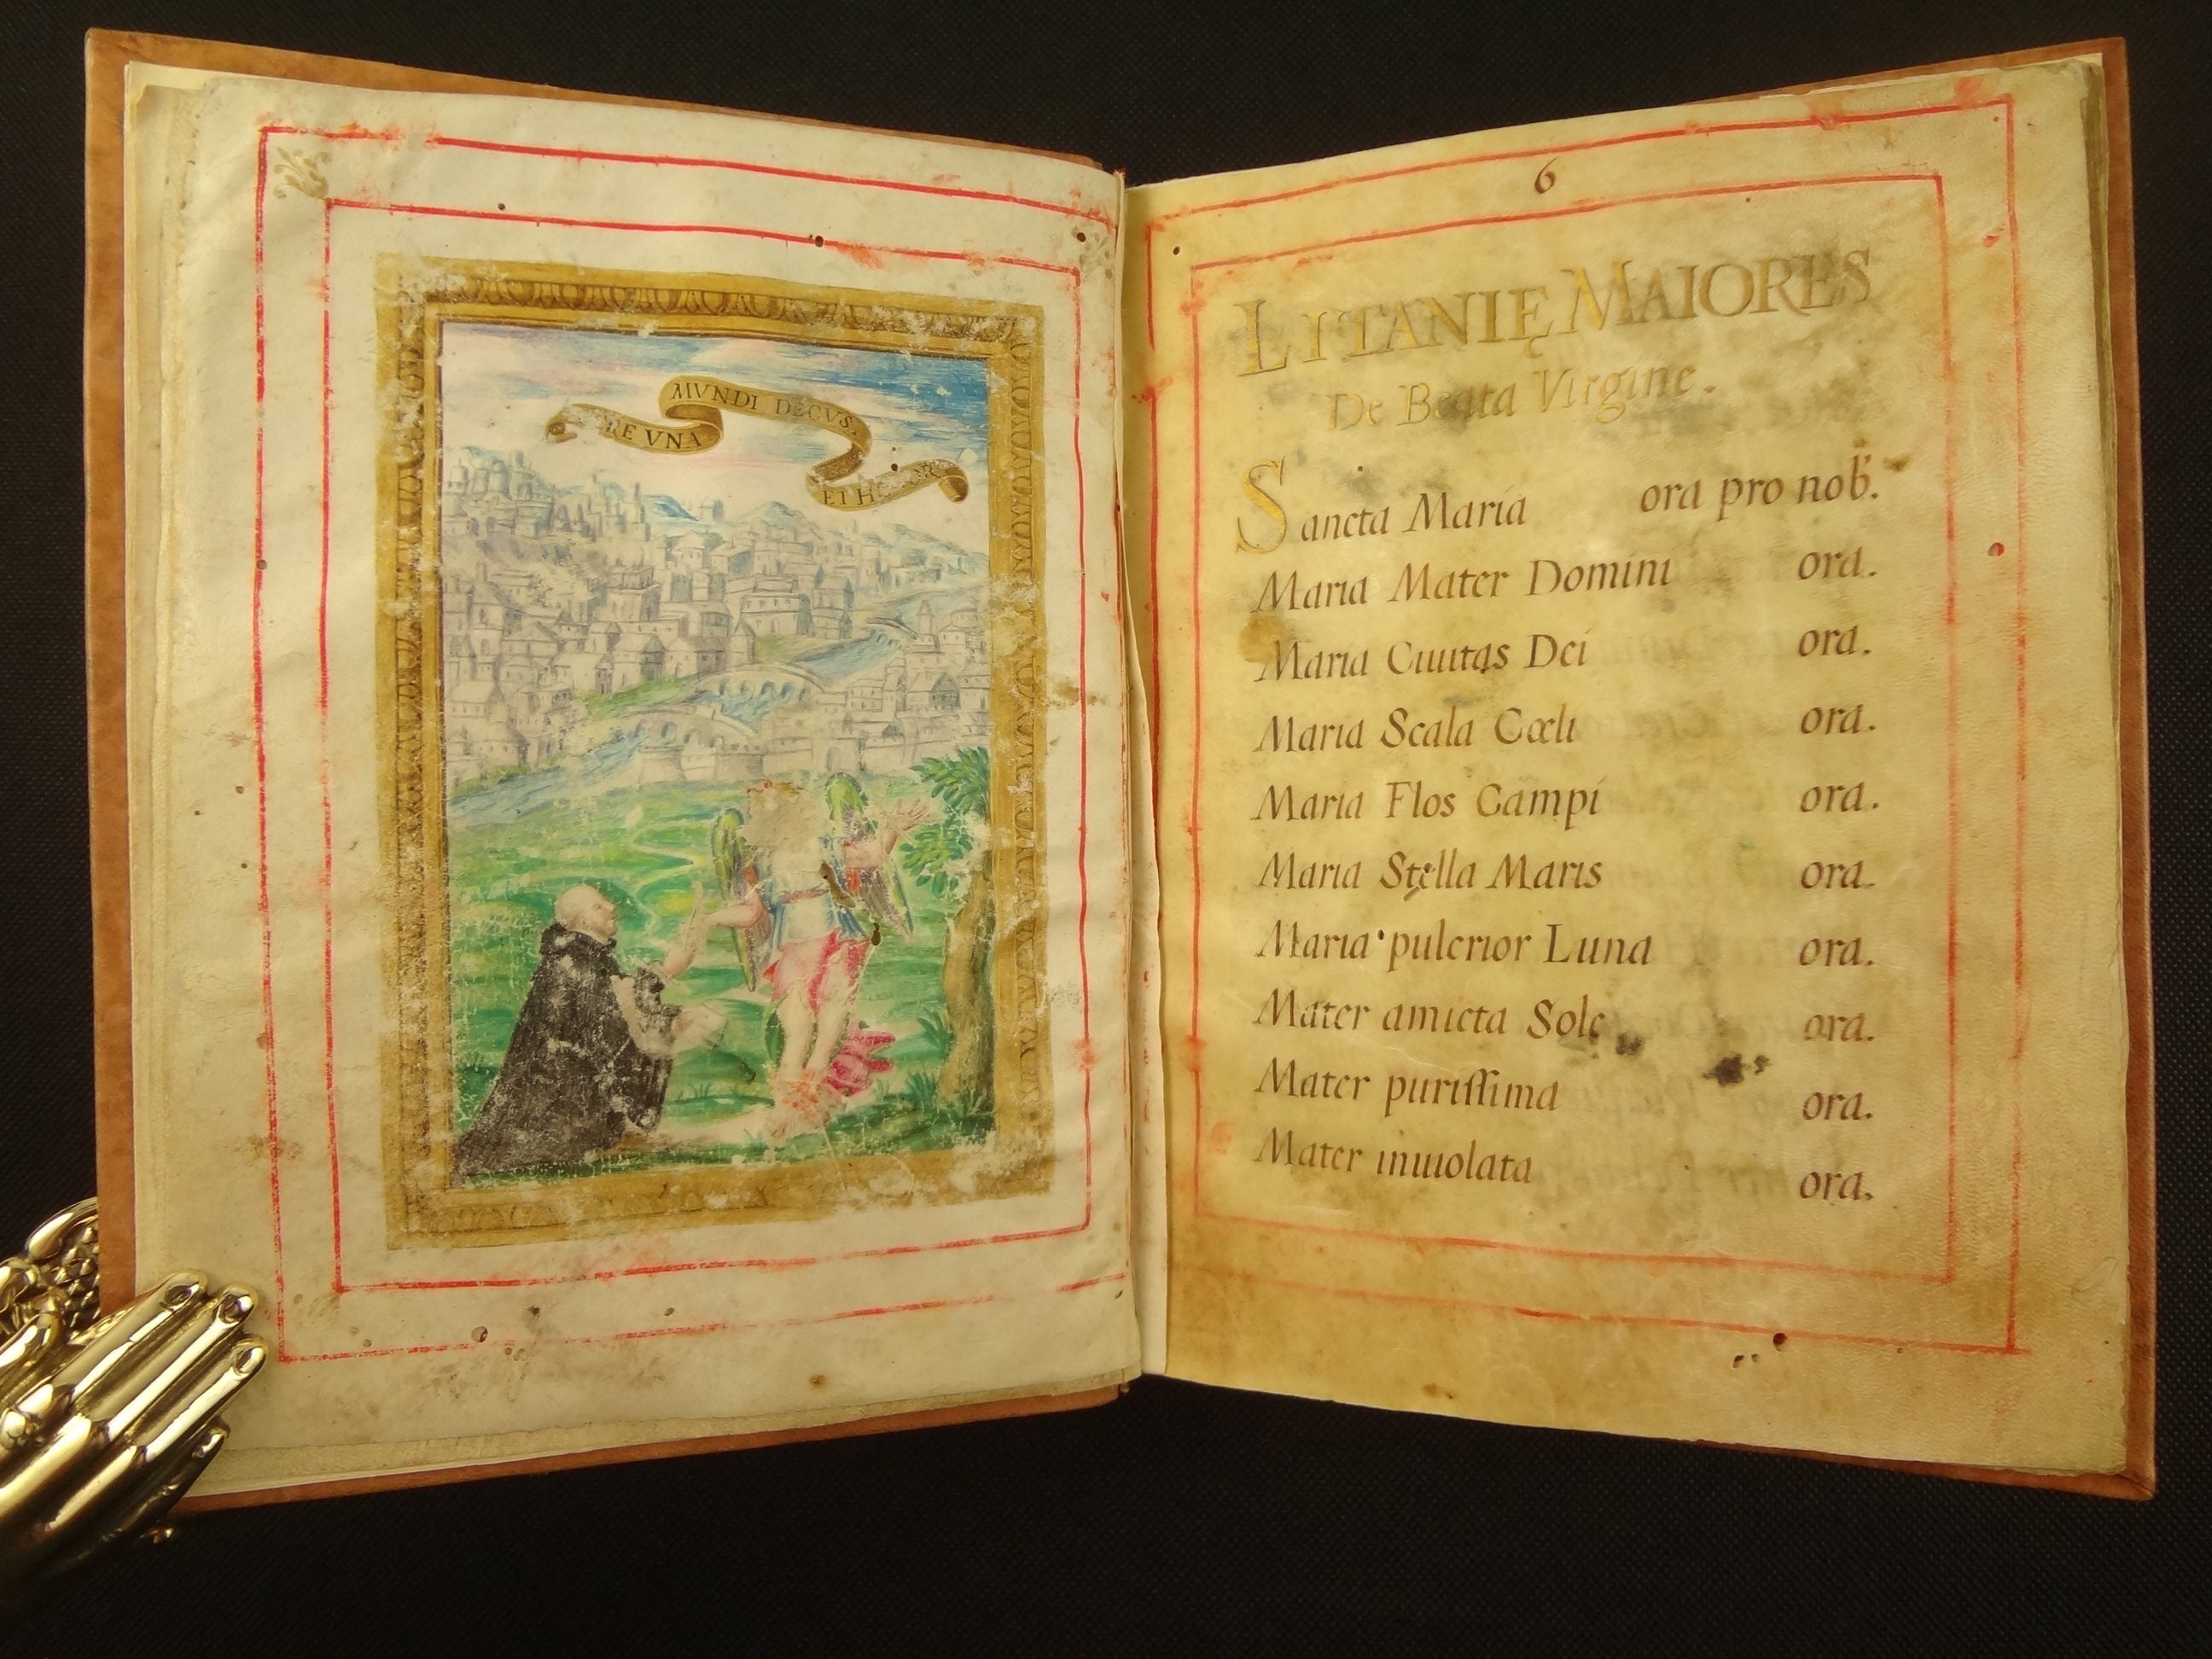 VNA
MVNDI DECVS.
ET HONOR
6
LITANIĘ MAIORES
De Beata Virgine.
Sancta Maria ora pro nob.
Maria Mater Domini ora.
Maria Ciuitas Dei ora.
Maria Scala Cœli ora.
Maria Flos Campi ora.
Maria Stella Maris ora.
Maria pulcrior Luna ora.
Mater amicta Sole ora.
Mater purissima ora.
Mater inuiolata ora.